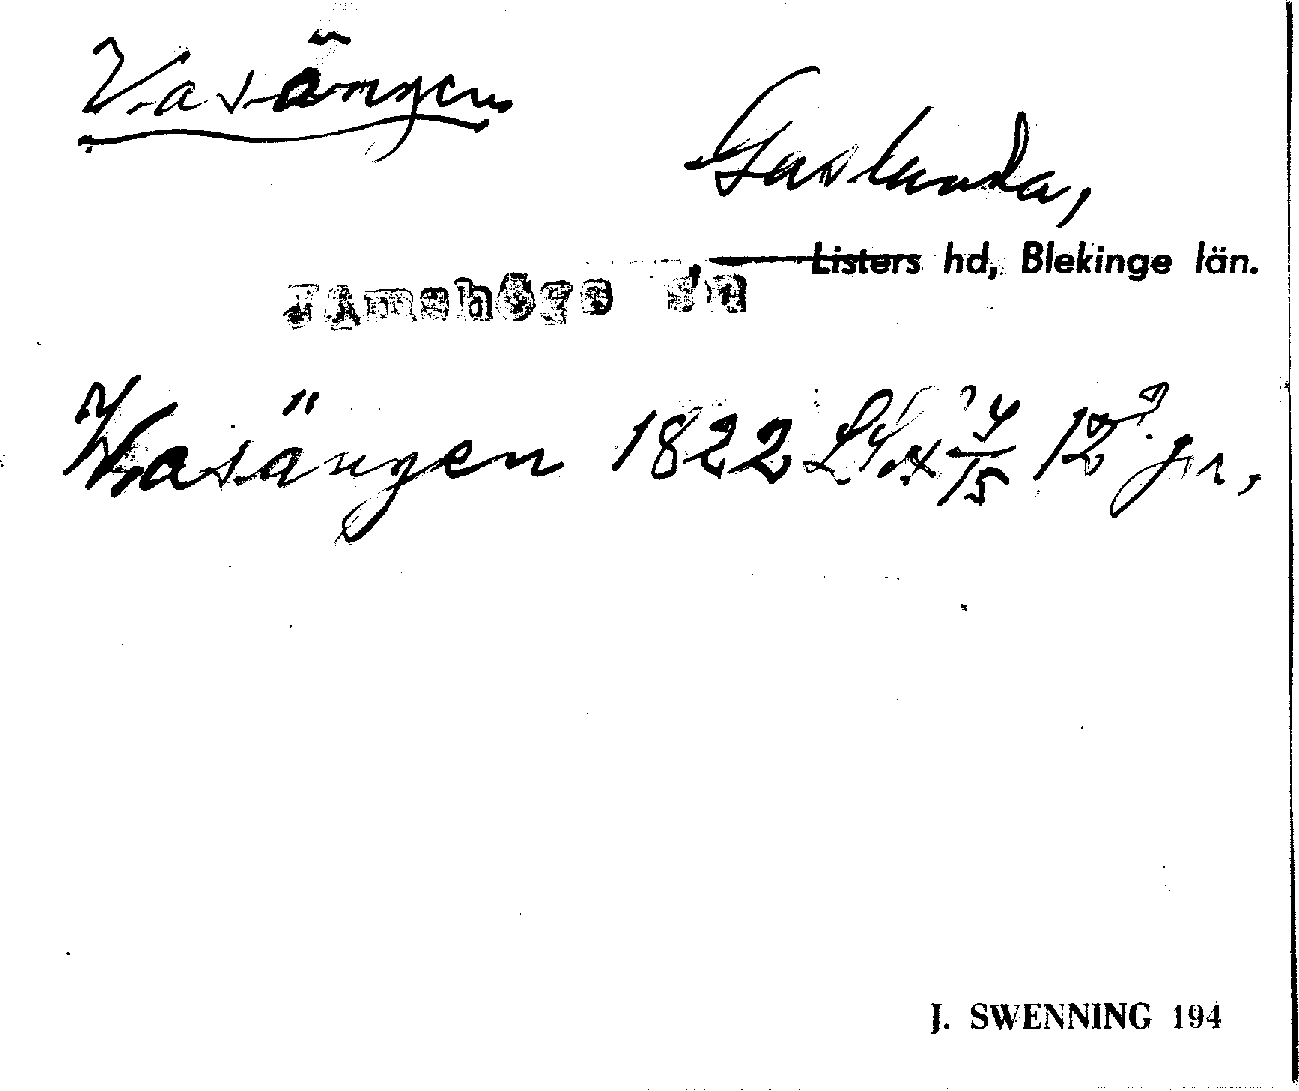 Vasängen
Gaslunda,
Listers hd, Blekinge län.
Jämshögs sn
Wasängen 1822 LSx 4/15 12 jor,
J. SWENNING 194